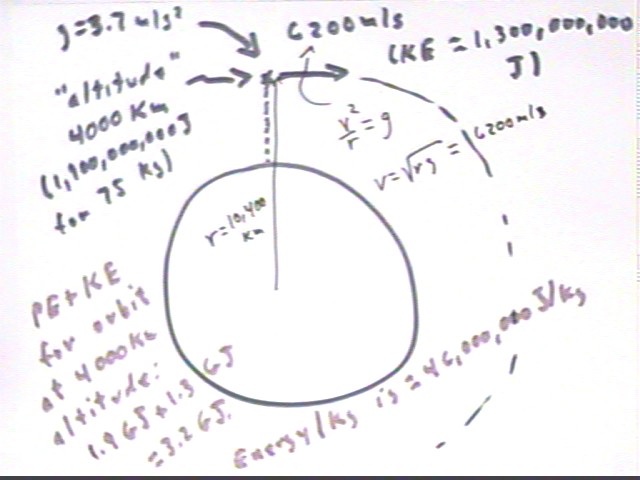 g=3.7 m/s²
6200 m/s
(KE = 1,300,000,000
J)
"altitude"
4000 Km
(1,900,000,000J
for 75 kg)
v²/r = g
v=√rg = 6200m/s
r=10,400
km
PE+KE
for orbit
at 4000km
altitude:
1.9 GJ + 1.3 GJ
=3.2 GJ.
Energy/kg is ≈ 46,000,000 J/kg